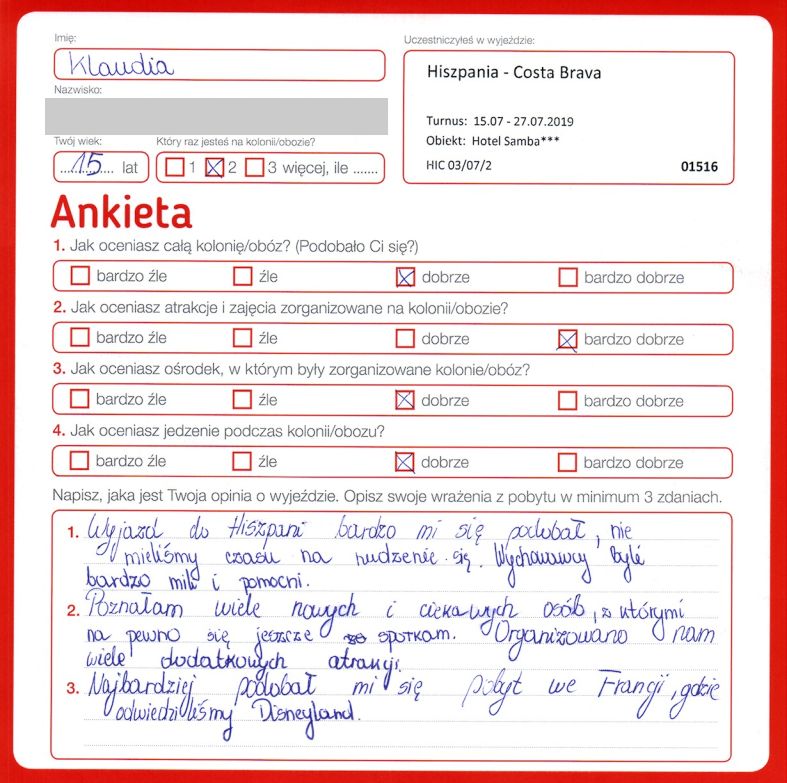 Imię:
Klaudia
Uczestniczyłeś w wyjeździe:
Hiszpania - Costa Brava
Turnus: 15.07 - 27.07.2019
Obiekt: Hotel Samba***
HIC 03/07/2 01516
Nazwisko:
Twój wiek:
15 lat
Który raz jesteś na kolonii/obozie?
1 2 3 więcej, ile .......
Ankieta
1. Jak oceniasz całą kolonię/obóz? (Podobało Ci się?)
bardzo źle źle dobrze bardzo dobrze
2. Jak oceniasz atrakcje i zajęcia zorganizowane na kolonii/obozie?
bardzo źle źle dobrze bardzo dobrze
3. Jak oceniasz ośrodek, w którym były zorganizowane kolonie/obóz?
bardzo źle źle dobrze bardzo dobrze
4. Jak oceniasz jedzenie podczas kolonii/obozu?
bardzo źle źle dobrze bardzo dobrze
Napisz, jaka jest Twoja opinia o wyjeździe. Opisz swoje wrażenia z pobytu w minimum 3 zdaniach.
1. Wyjazd do Hiszpani bardzo mi się podobał, nie
mieliśmy czasu na nudzenie się. Wychowawcy byli
bardzo mili i pomocni.
2. Poznałam wiele nowych i ciekawych osób, z którymi
na pewno się jeszcze spotkam. Organizowano nam
wiele dodatkowych atrakcji.
3. Najbardziej podobał mi się pobyt we Francji, gdzie
odwiedziliśmy Disneyland.